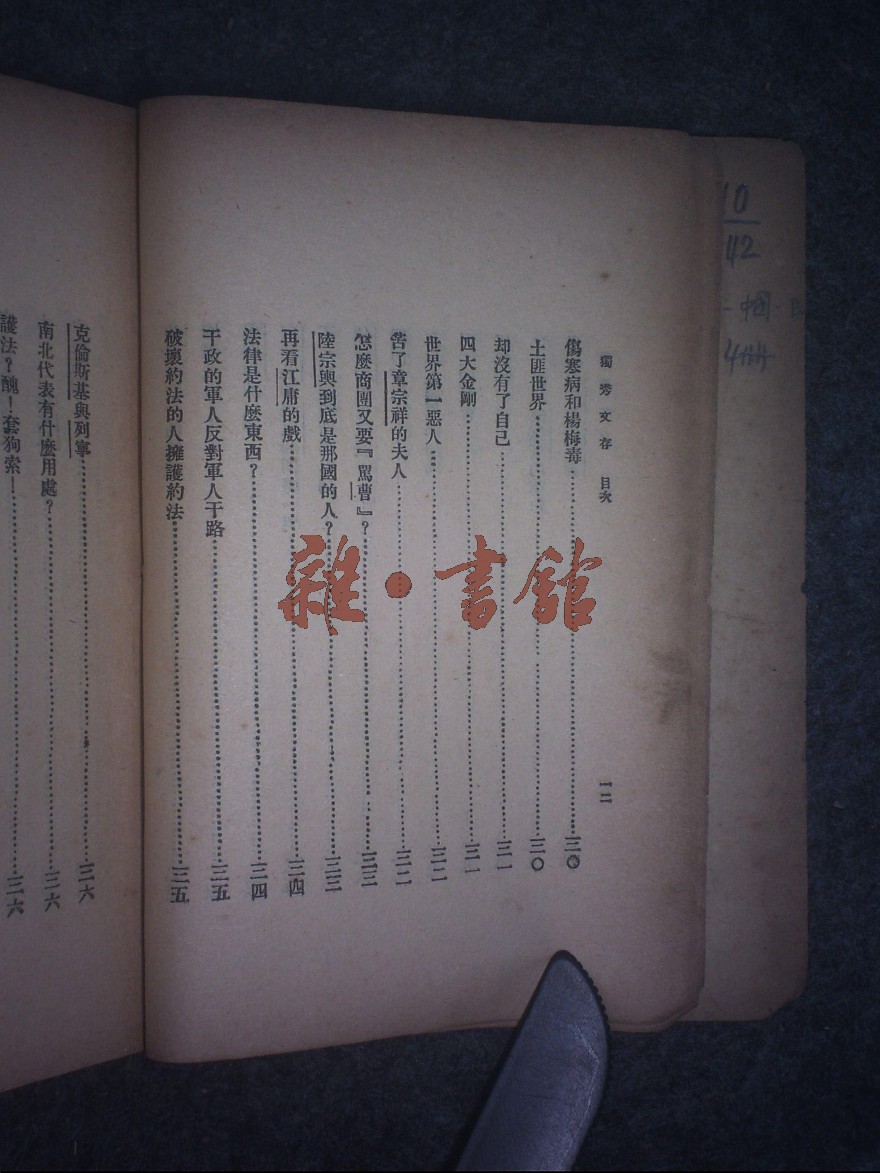 獨秀文存 目次 一二
傷寒病和楊梅毒…………三〇
土匪世界…………三〇
却沒有了自己…………三一
四大金剛…………三一
世界第一惡人…………三二
苦了章宗祥的夫人…………三二
怎麼商團又要『罵曹』?…………三三
陸宗輿到底是那國的人?…………三三
再看江庸的戲…………三四
法律是什麼東西?…………三四
干政的軍人反對軍人干路…………三五
破壞約法的人擁護約法…………三五
克倫斯基與列寧…………三六
南北代表有什麼用處?…………三六
護法?醜!套狗索!…………三六
雜·書館
10
42
中國
4冊